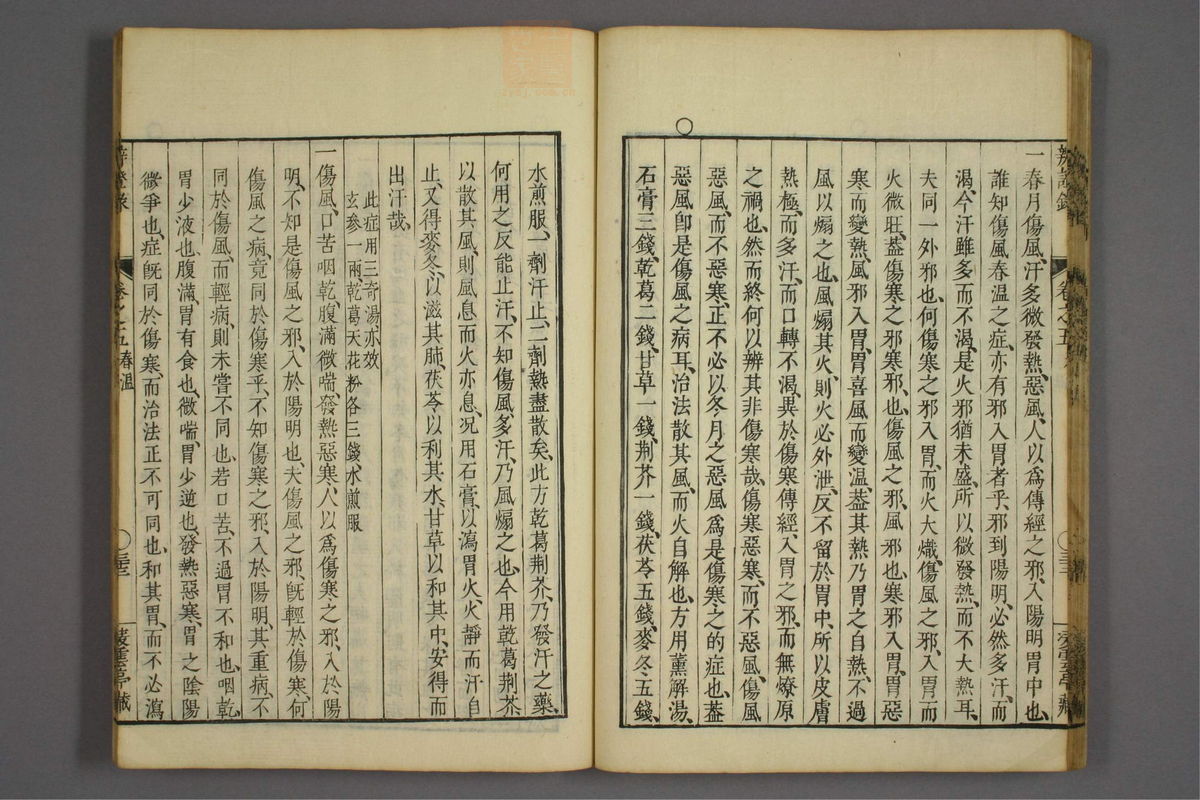 一春月傷風、汗多微發熱、惡風、人以爲傳經之邪、入陽明胃中也、
誰知傷風春溫之症、亦有邪入胃者乎、邪到陽明、必然多汗、而
渴、今汗雖多而不渴、是火邪猶未盛、所以微發熱、而不大熱耳、
夫同一外邪也、何傷寒之邪入胃、而火大熾、傷風之邪、入胃而
火微旺、葢傷寒之邪、寒邪也、傷風之邪、風邪也、寒邪入胃、胃惡
寒而變熱、風邪入胃、胃喜風而變溫、葢其熱乃胃之自熱、不過
風以煽之也、風煽其火、則火必外泄、反不留於胃中、所以皮膚
熱極、而多汗、而口轉不渴、異於傷寒傳經、入胃之邪、而無燎原
之禍也、然而終何以辨其非傷寒哉、傷寒惡寒、而不惡風、傷風
惡風、而不惡寒、正不必以冬月之惡風、爲是傷寒之的症也、葢
惡風卽是傷風之病耳、治法散其風、而火自解也、方用薰解湯、
石膏三錢、乾葛二錢、甘草一錢、荆芥一錢、茯苓五錢、麥冬五錢、
水煎服、一劑汗止、二劑熱盡散矣、此方乾葛荆芥、乃發汗之藥、
何用之反能止汗、不知傷風多汗、乃風煽之也、今用乾葛荆芥
以散其風、則風息而火亦息、况用石膏、以瀉胃火、火靜而汗自
止、又得麥冬、以滋其肺、茯苓以利其水、甘草以和其中、安得而
出汗哉、
此症用三奇湯亦效
玄參一兩乾葛天花粉各三錢水煎服
一傷風口苦咽乾、腹滿微喘、發熱惡寒、人以爲傷寒之邪、入於陽
明、不知是傷風之邪、入於陽明也、夫傷風之邪、旣輕於傷寒、何
傷風之病、竟同於傷寒乎、不知傷寒之邪、入於陽明、其重病、不
同於傷風、而輕病、則未嘗不同也、若口苦、不過胃不和也、咽乾、
胃少液也、腹滿、胃有食也、微喘、胃少逆也、發熱惡寒、胃之陰陽
微爭也、症旣同於傷寒、而治法正不可同也、和其胃、而不必瀉
辨證錄
卷之五春溫